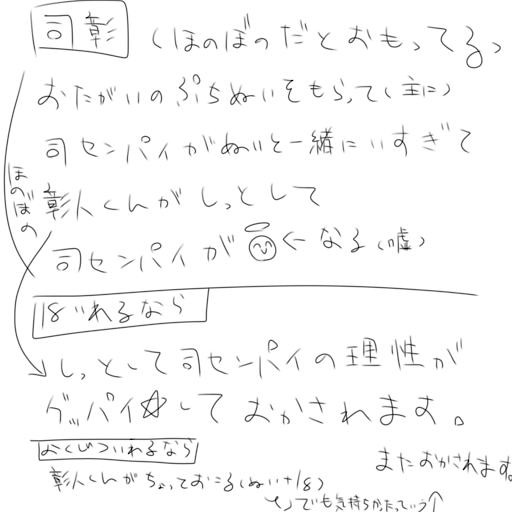 司彰 (ほのぼのだとおもってるっ
おたがいのぷちぬいをもらって(主に)
司センパイがぬいと一緒にいすぎて
ほのぼの
彰人くんがしっとして
司センパイが ←なる(嘘)
18いれるなら
しっとして司センパイの理性が
グッパイ☆しておかされます。
おくじついれるなら
彰人くんがちょっておこる(ぬい+18)
またおかされます。
でも気持ちかったっていう↑